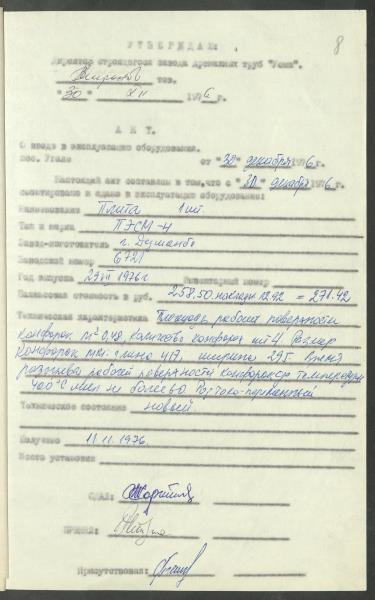 8
УТВЕРЖДАЮ:
Директор строящегося завода дренажных труб "Уоми".
тов.
"30" XII 1976 г.
АКТ.
О вводе в эксплуатацию оборудования.
пос. Угале от "30" декабря 1976 г.
Настоящий акт составлен в том, что с "30" декабря 1976 г.
смонтировано и сдано в эксплуатацию оборудование:
Наименование Плита 1 шт.
Тип и марка ПЭСМ-4
Завод-изготовитель г. Душанбе
Заводской номер 6721
Год выпуска 29 III 1976 г. Инвентарный номер
Балансовая стоимость в руб. 258.50. наклад. 12.92 = 271.42
Техническая характеристика Площадь рабочей поверхности
конфорок м² 0,48. Количество конфорок шт 4. Размер
Конфорок мм: длина 417. ширина 295 Время
разогрева рабочей поверхности конфорок до температуры
400°С мин не более 60 Род тока - переменный
Техническое состояние новый
Получено 11.11.1976
Место установки
СДАЛ:
ПРИНЯЛ:
Присутствовал: